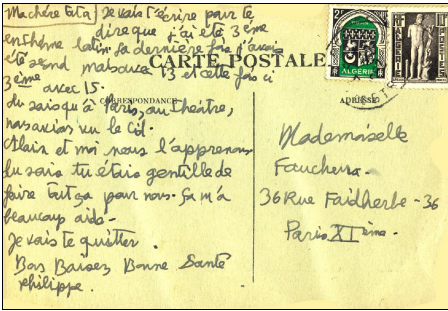 Ma chère tata Je vais t'écrire pour te
dire que j'ai été 3ème
en thème latin. La dernière fois j'avais
été second mais avec 13 et cette fois ci
3ème avec 15.
CARTE POSTALE
CORRESPONDANCE
ADRESSE
Tu sais qu'à Paris, au théatre,
nous avions vu le Cid.
Alain et moi nous l'apprenons
tu sais tu étais gentille de
faire tout ça pour nous. Ça m'a
beaucoup aidé -
Je vais te quitter.
Bons Baisers Bonne Santé
philippe.
2F
ALGERIE
RF
ALGERIE
Mademoiselle
Faucheux
36 Rue Faidherbe - 36
Paris XIème.